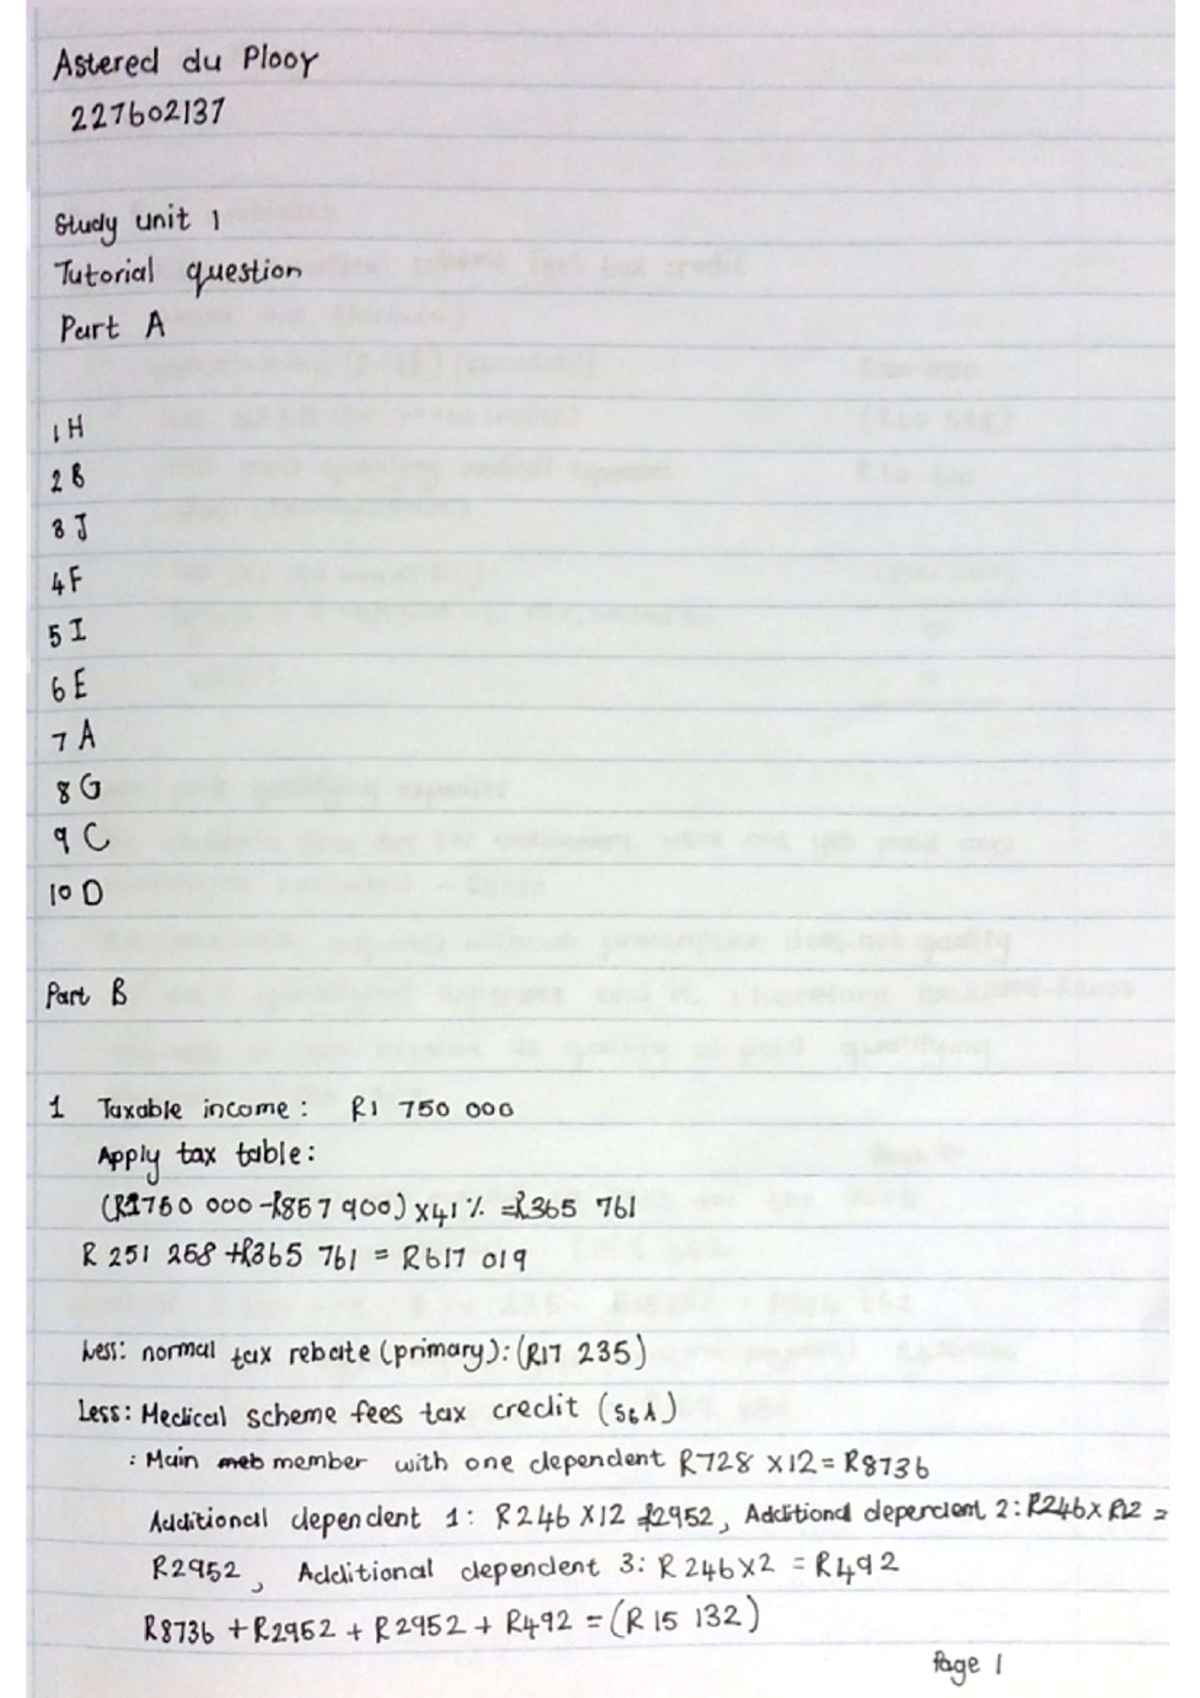 Astered du Plooy
227602137
Study unit 1
Tutorial question
Part A
1 H
2 B
3 J
4 F
5 I
6 E
7 A
8 G
9 C
10 D
Part B
1 Taxable income: R1 750 000
Apply tax table:
(R1750 000-R857 900) x41% =R365 761
R 251 258 +R365 761 = R617 019
Less: normal tax rebate (primary): (R17 235)
Less: Medical scheme fees tax credit (S6A)
: Main meb member with one dependent R728 X12 = R8736
Additional dependent 1: R246 X12 =R2952, Additional dependent 2: R246x R12 =
R2952, Additional dependent 3: R 246X2 = R492
R8736 + R2952 + R2952 + R492 = (R 15 132)
Page 1